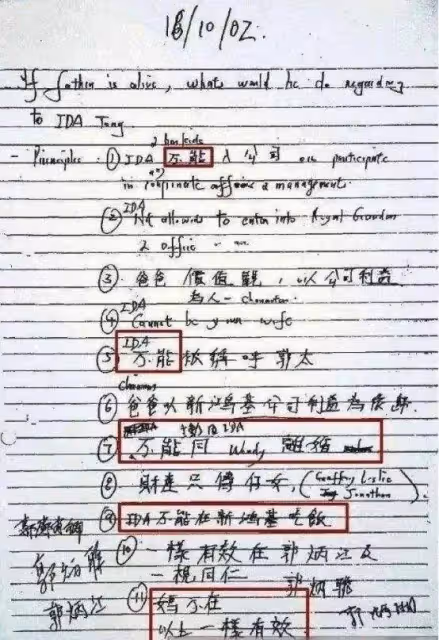 18/10/02.
If father is alive, what would he do regarding
to IDA Tong
- Principles ① IDA 不能 入公司 or participate
in corporate affairs & management.
② IDA Not allowed to enter into Royal Garden
& office
③ 爸爸 價值觀, 以公司利益
為人 - character.
④ IDA Cannot be your wife
⑤ IDA 不能被稱呼郭太
⑥ 爸爸以新鴻基公司利益為依歸.
⑦ 不能同 Wendy 離婚
⑧ 財產只傳仔女, (Geoffrey Leslie
Jonathan)
⑨ IDA 不能在新鴻基吃飯
⑩ 一樣有效在郭炳江及
一視同仁 郭炳聯
郭炳江
⑪ 媽不在
以上一樣有效